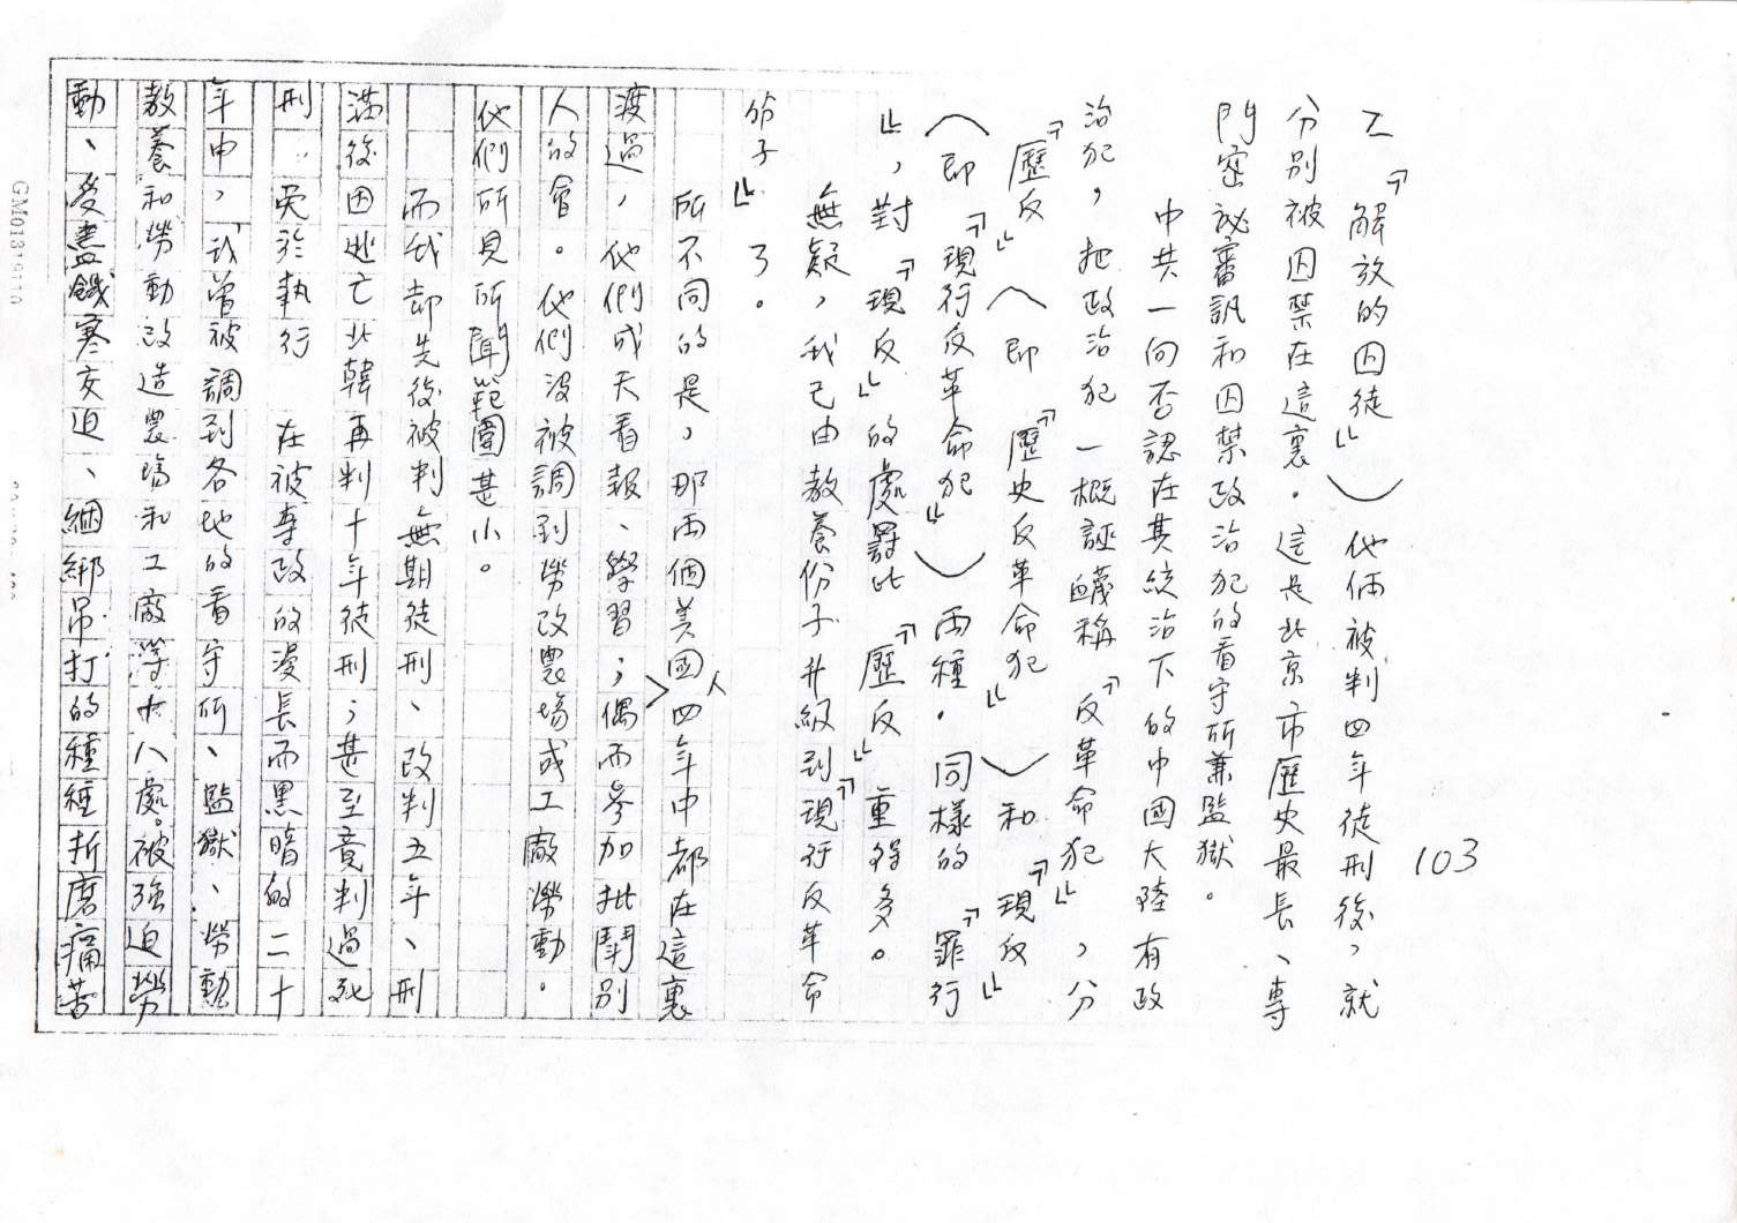 103
乙『解放的囚徒』）他倆被判四年徒刑後，就
分別被囚禁在這裏。這是北京市歷史最長、專
門密祕審訊和囚禁政治犯的看守所兼監獄。
中共一向否認在其統治下的中國大陸有政
治犯，把政治犯一概誣衊稱『反革命犯』，分
『歷反』（即『歷史反革命犯』）和『現反』
（即『現行反革命犯』）兩種。同樣的『罪行
』，對『現反』的處罰比『歷反』重得多。
無疑，我已由教養份子升級到『現行反革命
份子』了。
所不同的是，那兩個美國人四年中都在這裏
渡過，他們成天看報、學習；偶而參加批鬥別
人的會。他們沒被調到勞改農場或工廠勞動。
他們所見所聞範圍甚小。
而我却先後被判無期徒刑、改判五年、刑
滿後因逃亡北韓再判十年徒刑；甚至竟判過死
刑 免於執行 在被專政的漫長而黑暗的二十
年中，我曾被調到各地的看守所、監獄、勞動
教養和勞動改造農場和工廠等廿八處。被強迫勞
動、受盡餓寒交迫、綑綁吊打的種種折磨痛苦
GM01319110